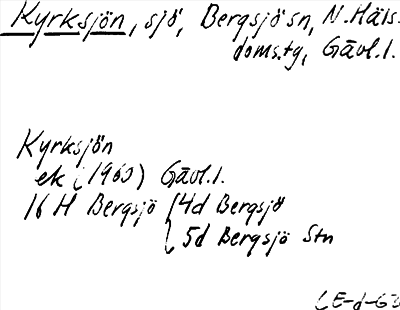 Kyrksjön, sjö, Bergsjö sn, N. Häls.
doms.tg, Gävl.l.
Kyrksjön
ek (1960) Gävl.l.
16 H Bergsjö { 4d Bergsjö
5d Bergsjö Stn